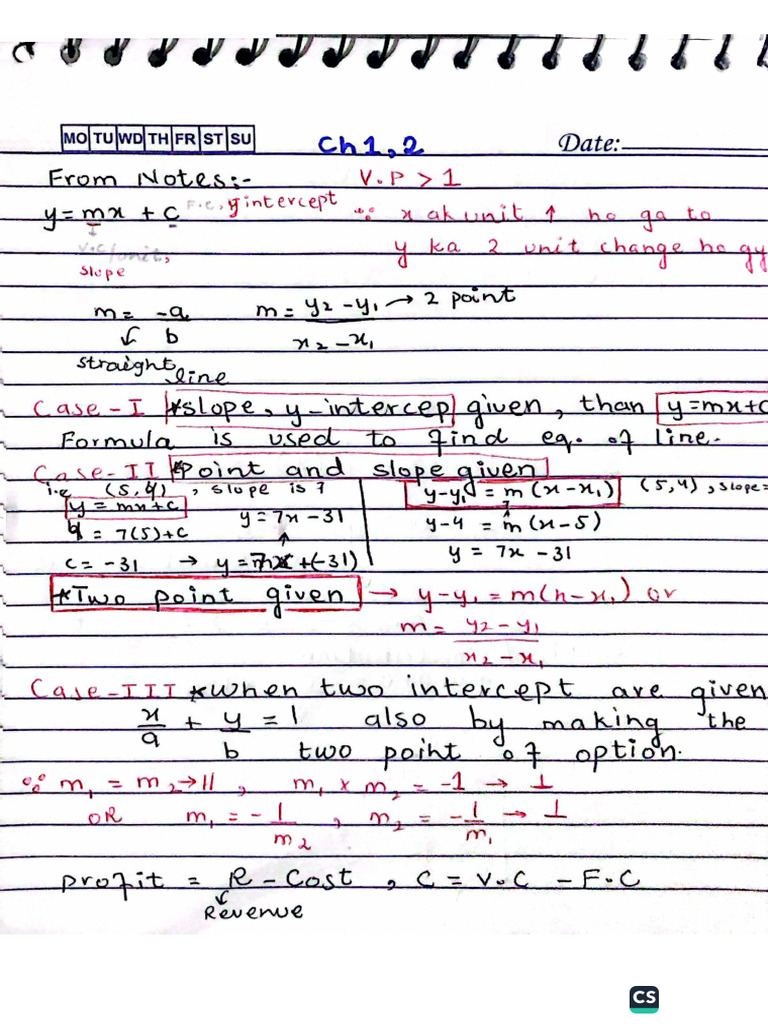 MO TU WD TH FR ST SU
Ch 1, 2
Date:
From Notes:- V.P > 1
y = mx + c F.C, y intercept ∵ x ak unit ↑ ho ga to
V.C/unit, y ka 2 unit change ho gy
slope
m = -a/b m = y2 - y1 / x2 - x1 → 2 point
straight line
Case-I *slope, y-intercep given, than y=mx+c
Formula is used to find eq. of line.
Case-II *Point and slope given
i.e (5,4), slope is 7 y-y1 = m(x-x1) (5,4), slope=
y = mx+c y = 7x-31 y-4 = m(x-5)
4 = 7(5)+c 7
c = -31 → y = 7x+(-31) y = 7x-31
*Two point given → y-y1 = m(x-x1) or
m = y2-y1 / x2-x1
Case-III *when two intercept are given
x/a + y/b = 1 also by making the
two point of option.
∵ m1 = m2 → ||, m1 x m2 = -1 → ⊥
OR m1 = -1/m2, m2 = -1/m1 → ⊥
profit = R - Cost, C = V.C - F.C
Revenue
CS